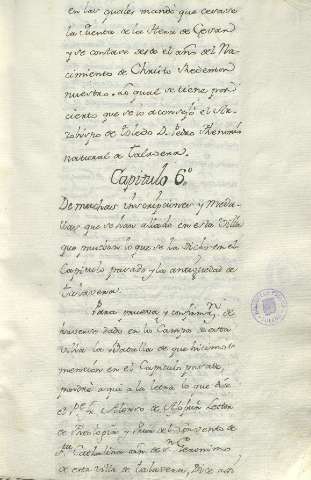 en las quales mandó que cesase
la Cuenta de la Hera de Cesar
y se contase desde el año del Na-
cimiento de Christo Redemor
nuestro. Lo qual se tiene por
cierto que se lo aconsejó el Ar-
zobispo de Toledo D. Pedro Thenorio
natural de Talavera.
Capitulo 6º
De muchas inscrepciones y Meda-
llas que se han allado en esta Villa
que prueban lo que se ha dicho en el
Capitulo pasado y la antiguedad de
Talavera
Para prueva y confirmn. de
haverse dado en los Campos de esta
villa la Batalla de que hicimos
mencion en el Capitulo pasado
pondré aqui a la letra lo que dice
el Pe. fr. Alonso de Ajofrin Lector
de Theologia y Prior del Convento de
sta. Cathalina orn. de sn. Geronimo
de esta villa de Talavera, Dice asi